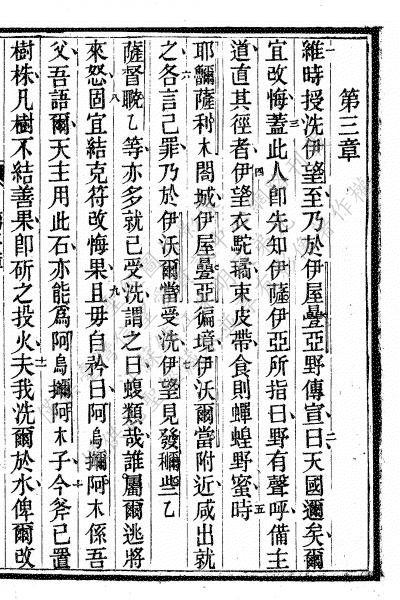 第三章
維時授洗伊望至乃於伊屋曡亞野傳宣曰天國邇矣爾
宜改悔蓋此人卽先知伊薩伊亞所指曰野有聲呼備主
道直其徑者伊望衣駝𣯶束皮帶食則蟬蝗野蜜時
耶𨭎薩利木閤城伊屋曡亞徧境伊沃爾當附近咸出就
之各言己罪乃於伊沃爾當受洗伊望見發穪些乙
薩督聭乙等亦多就己受洗謂之曰蝮類哉誰屬爾逃將
來怒固宜結克符改悔果且毋自矜曰阿烏擲阿木係吾
父吾語爾天主用此石亦能爲阿烏擲阿木子今斧已置
樹株凡樹不結善果卽斫之投火夫我洗爾於水俾爾改